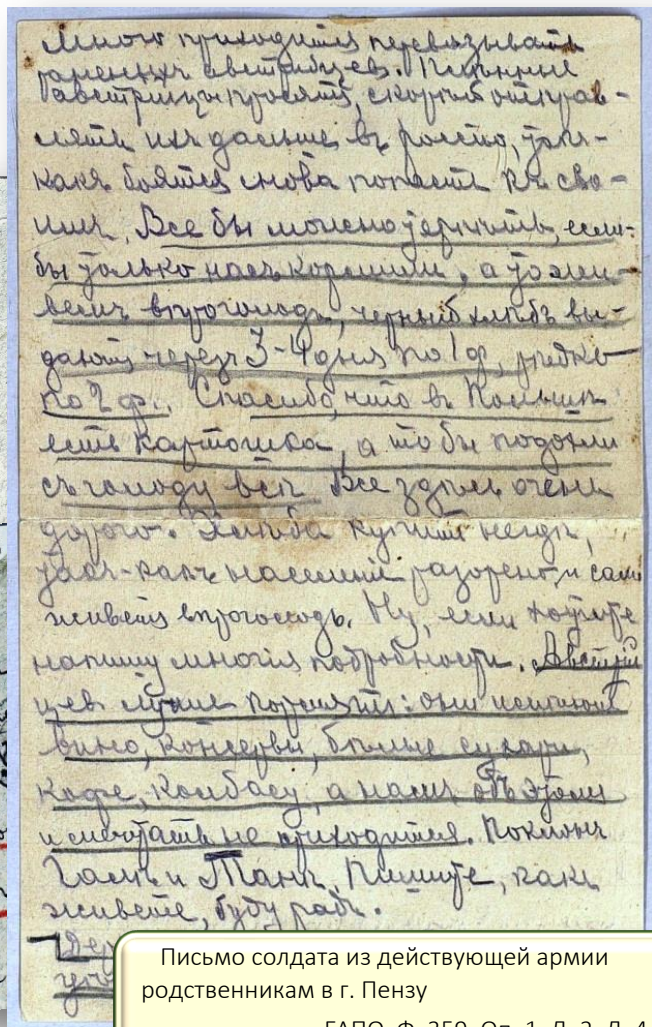 Много приходится перевязывать
раненыхъ австрийцев. Пленные
австрийцы просятъ, скорей отправ-
лять ихъ дальше въ
какъ боятся снова попасть къ сво-
имъ. Все бы можно терпить, если-
бы только насъ кормили, а то жи-
вемъ впроголодь, черный хлѣбъ вы-
даютъ черезъ 3-4 дня по 1 ф, рѣдко
по 2 ф. Спасибо, что въ Польшѣ
есть картошка, а то бы подохли
съ голоду всѣ. Все здѣсь очень
дорого. Хлѣба купить негдѣ,
такъ-какъ населенiе разорено, и сами
живетъ впроголодь. Ну, если хотите
напишу многiя подробности. Австрiй
цев лучше кормятъ: они
вино, консервы, бѣлые сухари,
кофе, колбасу, а намъ объ этомъ
и мечтать не приходится. Поклонъ
и Танѣ. Пишите, какъ
живете, буду радъ.
Письмо солдата из действующей армии
родственникам в г. Пензу